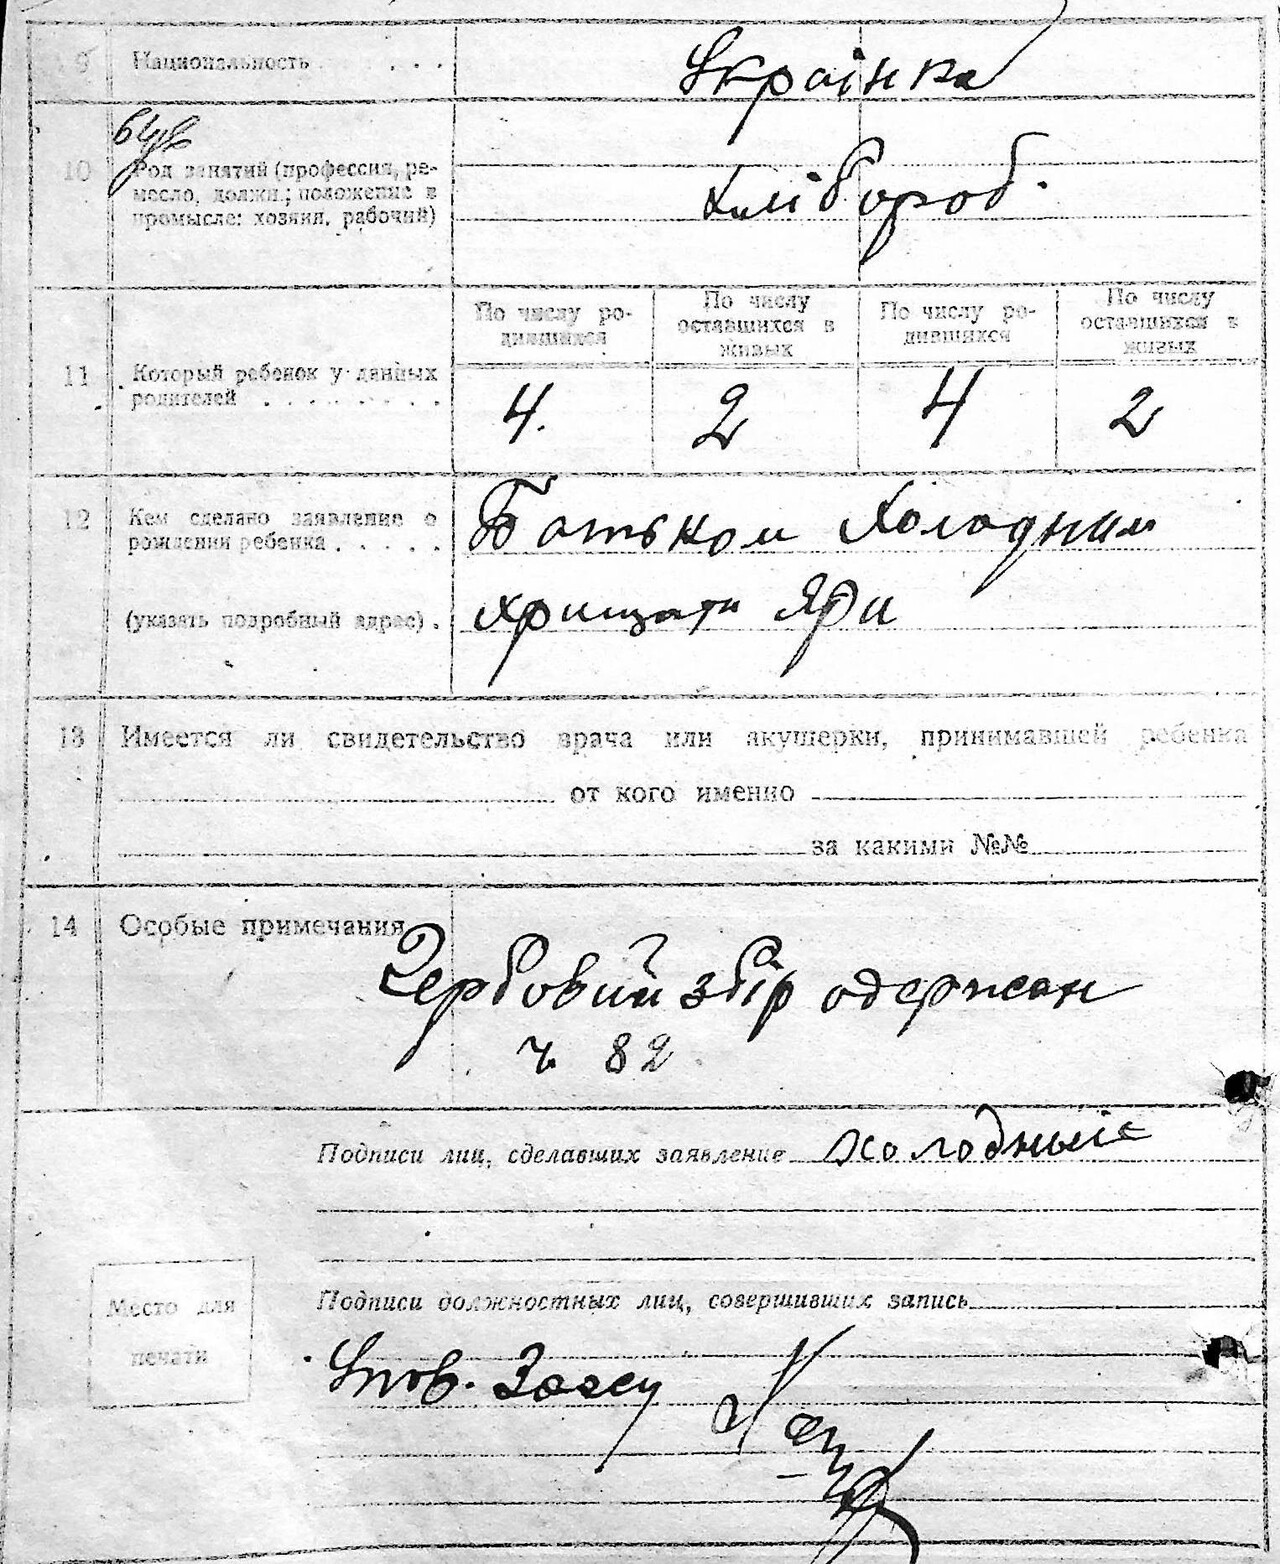 9 Национальность . . . .
Українка
10 Род занятий (профессия, ре-
месло, должн.; положение в
промысле: хозяин, рабочий)
Хлібороб.
По числу ро-
дившихся
По числу
оставшихся в
живых
По числу ро-
дившихся
По числу
оставшихся в
живых
11 Который ребенок у данных
родителей . . . . . . . .
4. 2 4 2
12 Кем сделано заявление о
рождении ребенка . . . . .
(указать подробный адрес) .
Батьком Холодним
Хрищаті Яри
13 Имеется ли свидетельство врача или акушерки, принимавшей ребенка
от кого именно
за какими №№
14 Особые примечания
Гербовий збір одержан
ч 82
Подписи лиц, сделавших заявление Холодный
Подписи должностных лиц, совершивших запись
Место для
печати
Упов. Загсу